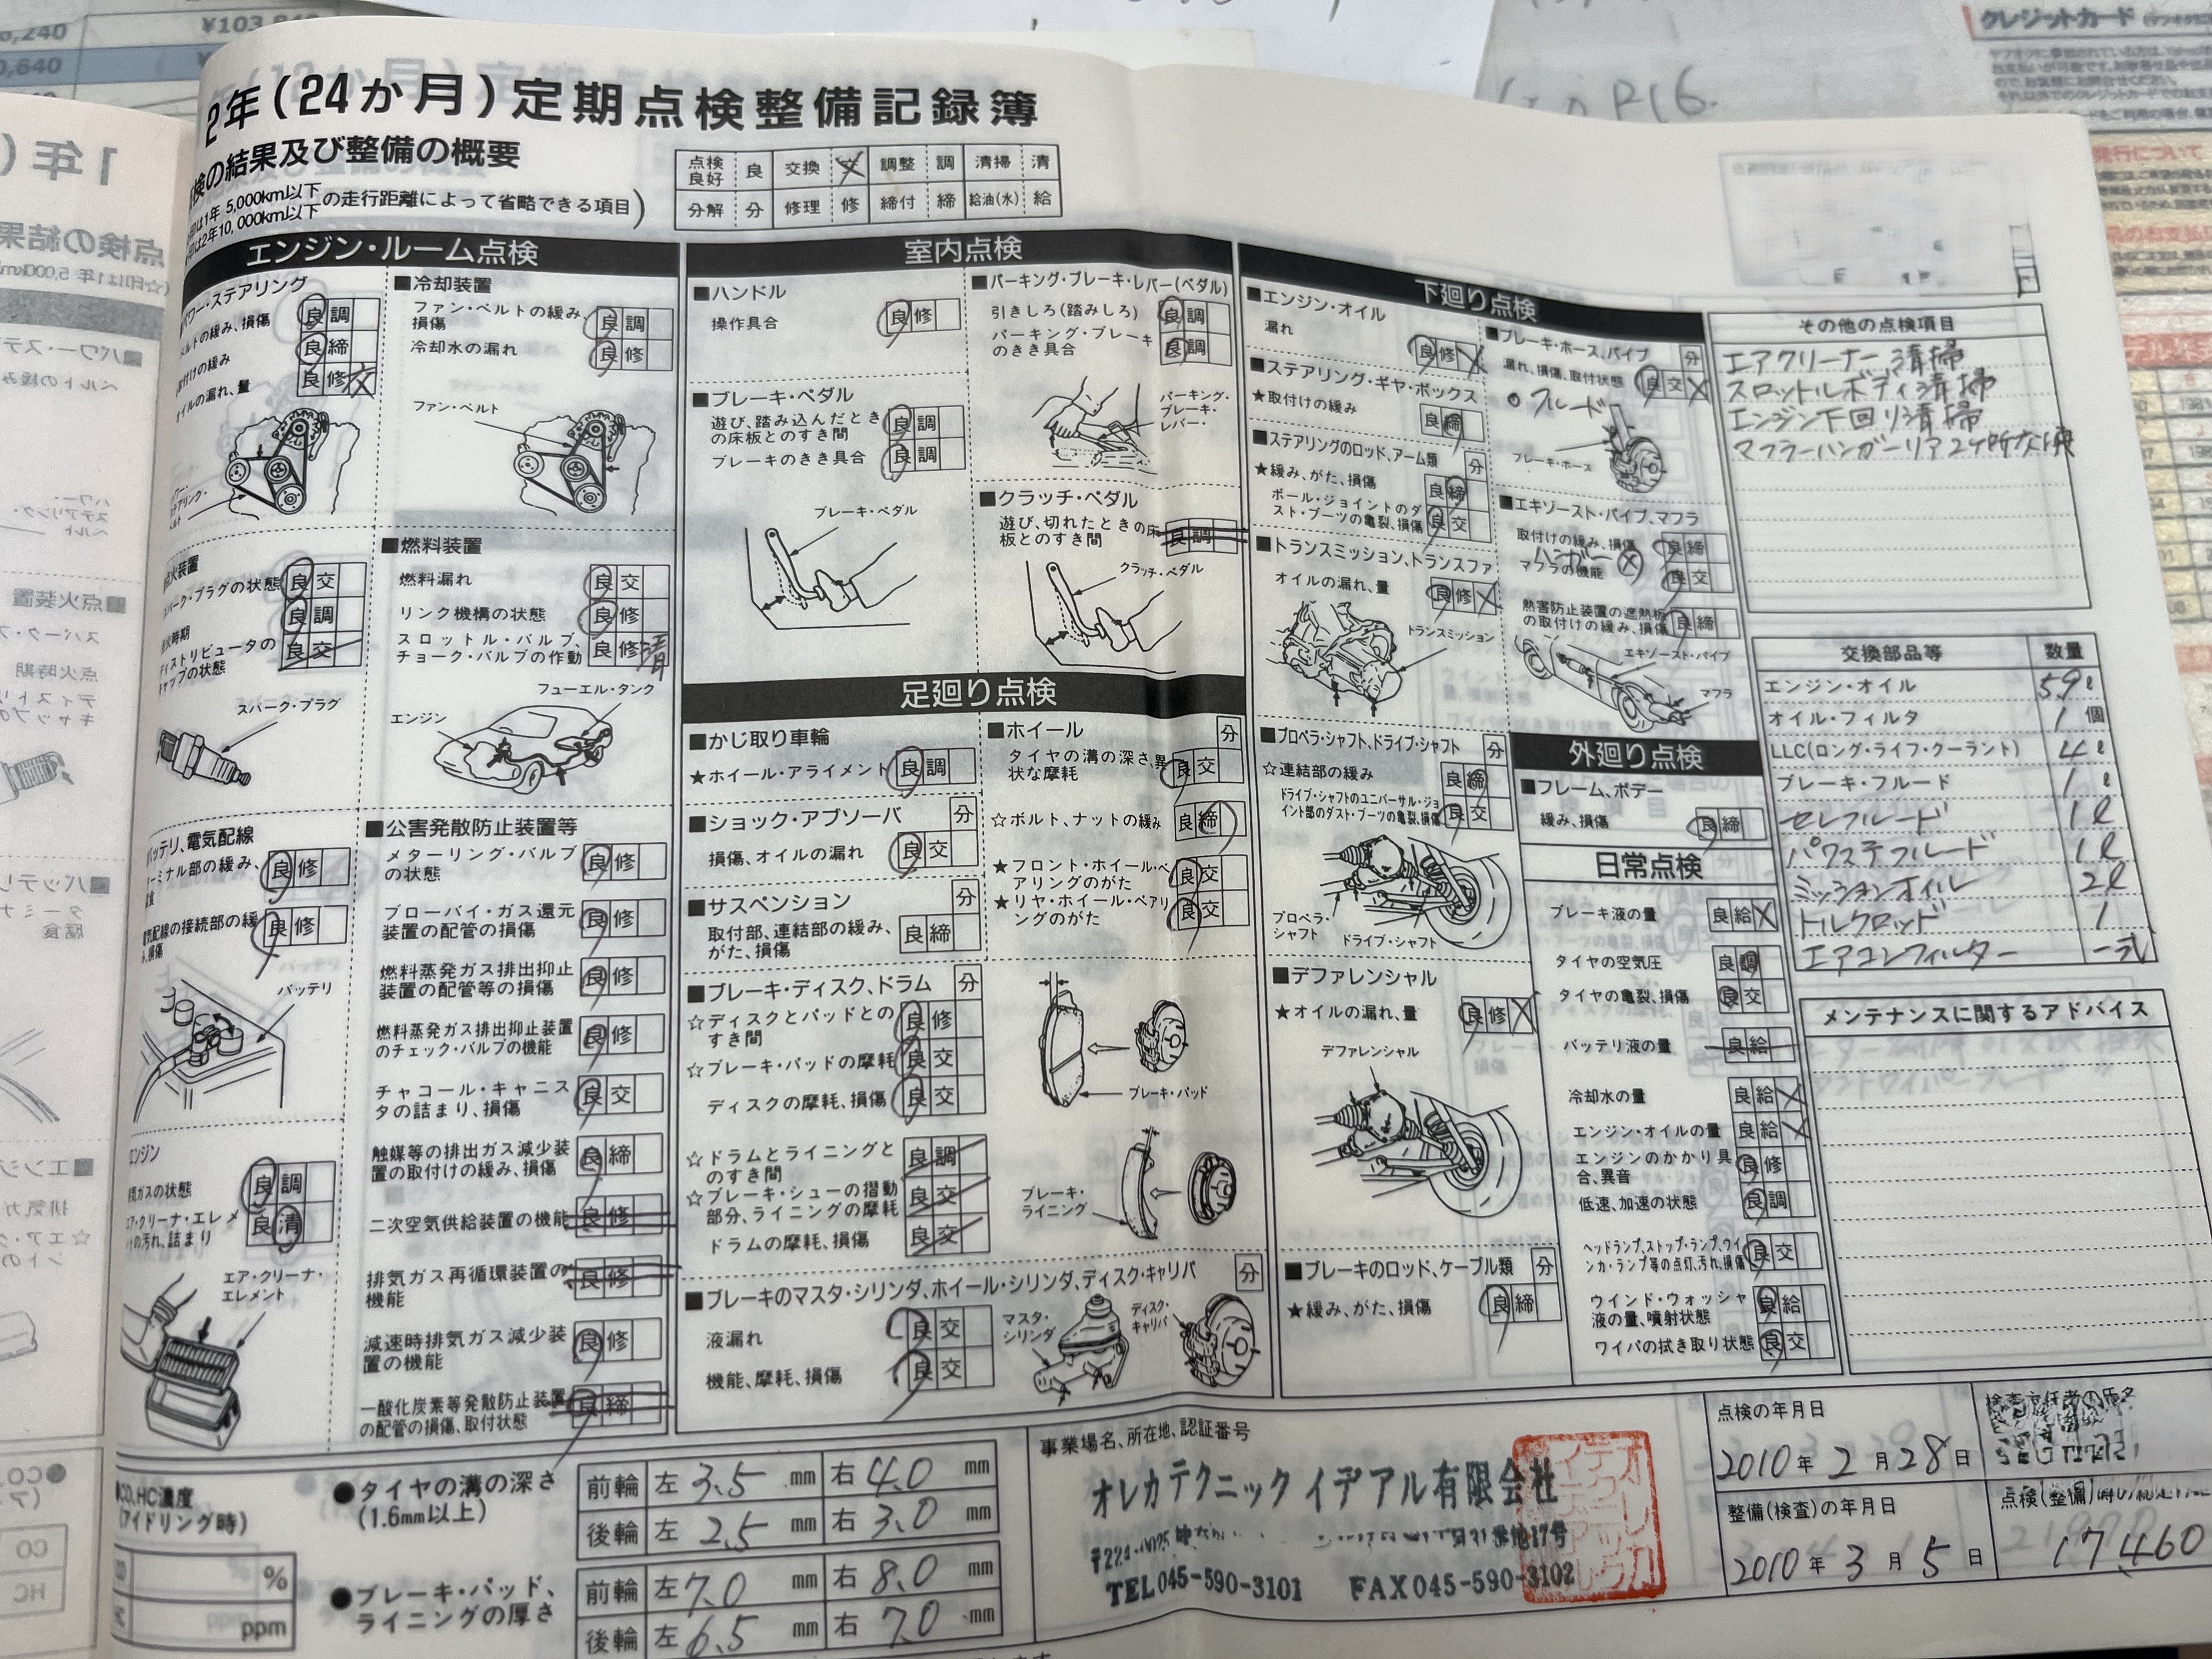 ¥103,8
,240
0,640
クレジットカード
P16.
2年(24か月)定期点検整備記録簿
検の結果及び整備の概要
印は1年 5,000km以下
印は2年10,000km以下
の走行距離によって省略できる項目)
点検良好 良 交換 交 調整 調 清掃 清
分解 分 修理 修 締付 締 給油(水) 給
エンジン・ルーム点検
パワー・ステアリング
ベルトの緩み、損傷 良 調
取付けの緩み 良 締
オイルの漏れ、量 良 修 交
■冷却装置
ファン・ベルトの緩み、損傷 良 調
冷却水の漏れ 良 修
ファン・ベルト
点火装置
スパーク・プラグの状態 良 交
点火時期 良 調
ディストリビュータのキャップの状態 良 交
スパーク・プラグ
■燃料装置
燃料漏れ 良 交
リンク機構の状態 良 修
スロットル・バルブ、チョーク・バルブの作動 良 修 清
フューエル・タンク
エンジン
バッテリ、電気配線
ターミナル部の緩み、腐食 良 修
電気配線の接続部の緩み、損傷 良 修
バッテリ
エンジン
排気ガスの状態 良 調
エア・クリーナ・エレメントの汚れ、詰まり 良 清
エア・クリーナ・エレメント
■公害発散防止装置等
メターリング・バルブの状態 良 修
ブローバイ・ガス還元装置の配管の損傷 良 修
燃料蒸発ガス排出抑止装置の配管等の損傷 良 修
燃料蒸発ガス排出抑止装置のチェック・バルブの機能 良 修
チャコール・キャニスタの詰まり、損傷 良 交
触媒等の排出ガス減少装置の取付けの緩み、損傷 良 締
二次空気供給装置の機能 良 修
排気ガス再循環装置の機能 良 修
減速時排気ガス減少装置の機能 良 修
一酸化炭素等発散防止装置の配管の損傷、取付状態 良 締
室内点検
■ハンドル
操作具合 良 修
■ブレーキ・ペダル
遊び、踏み込んだときの床板とのすき間 良 調
ブレーキのきき具合 良 調
ブレーキ・ペダル
■パーキング・ブレーキ・レバー(ペダル)
引きしろ(踏みしろ) 良 調
パーキング・ブレーキのきき具合 良 調
パーキング・ブレーキ・レバー
■クラッチ・ペダル
遊び、切れたときの床板とのすき間 良 調
クラッチ・ペダル
足廻り点検
■かじ取り車輪
★ホイール・アライメント 良 調
■ショック・アブソーバ 分
損傷、オイルの漏れ 良 交
■サスペンション 分
取付部、連結部の緩み、がた、損傷 良 締
■ホイール 分
タイヤの溝の深さ、異状な摩耗 良 交
☆ボルト、ナットの緩み 良 締
★フロント・ホイール・ベアリングのがた 良 交
★リヤ・ホイール・ベアリングのがた 良 交
■ブレーキ・ディスク、ドラム 分
☆ディスクとパッドとのすき間 良 修
☆ブレーキ・パッドの摩耗 良 交
ディスクの摩耗、損傷 良 交
☆ドラムとライニングとのすき間 良 調
☆ブレーキ・シューの摺動部分、ライニングの摩耗 良 交
ドラムの摩耗、損傷 良 交
ブレーキ・パッド
ブレーキ・ライニング
■ブレーキのマスタ・シリンダ、ホイール・シリンダ、ディスク・キャリパ 分
液漏れ 良 交
機能、摩耗、損傷 良 交
マスタ・シリンダ
ディスク・キャリパ
下廻り点検
■エンジン・オイル
漏れ 良 修
■ステアリング・ギヤ・ボックス
★取付けの緩み 良 締
■ステアリングのロッド、アーム類 分
★緩み、がた、損傷 良 締
ボール・ジョイントのダスト・ブーツの亀裂、損傷 良 交
■トランスミッション、トランスファ
オイルの漏れ、量 良 修
トランスミッション
■プロペラ・シャフト、ドライブ・シャフト 分
☆連結部の緩み 良 締
ドライブ・シャフトのユニバーサル・ジョイント部のダスト・ブーツの亀裂、損傷 良 交
プロペラ・シャフト
ドライブ・シャフト
■デファレンシャル
★オイルの漏れ、量 良 修
デファレンシャル
■ブレーキのロッド、ケーブル類 分
★緩み、がた、損傷 良 締
■ブレーキ・ホース、パイプ 分
漏れ、損傷、取付状態 良 交
フルード
ブレーキ・ホース
■エキゾースト・パイプ、マフラ
取付けの緩み、損傷 良 締
ハンガー
マフラの機能 良 交
熱害防止装置の遮熱板の取付けの緩み、損傷 良 締
エキゾースト・パイプ
マフラ
外廻り点検
■フレーム、ボデー
緩み、損傷 良 締
日常点検
ブレーキ液の量 良 給
タイヤの空気圧 良 調
タイヤの亀裂、損傷 良 交
バッテリ液の量 良 給
冷却水の量 良 給
エンジン・オイルの量 良 給
エンジンのかかり具合、異音 良 修
低速、加速の状態 良 調
ヘッドランプ、ストップ・ランプ、ウインカ・ランプ等の点灯、汚れ、損傷 良 交
ウインド・ウォッシャ液の量、噴射状態 良 給
ワイパの拭き取り状態 良 交
その他の点検項目
エアクリーナー清掃
スロットルボディ清掃
エンジン下回り清掃
マフラーハンガーリア2ケ所交換
交換部品等 数量
エンジン・オイル 5.9ℓ
オイル・フィルタ 1個
LLC(ロング・ライフ・クーラント) 4ℓ
ブレーキ・フルード 1ℓ
セレフルード 1ℓ
パワステフルード 1ℓ
ミッションオイル 2ℓ
トルクロッド 1
エアコンフィルター 一式
メンテナンスに関するアドバイス
CO、HC濃度
(アイドリング時)
%
ppm
●タイヤの溝の深さ
(1.6mm以上)
前輪 左 3.5 mm 右 4.0 mm
後輪 左 2.5 mm 右 3.0 mm
●ブレーキ・パッド、ライニングの厚さ
前輪 左 7.0 mm 右 8.0 mm
後輪 左 6.5 mm 右 7.0 mm
事業場名、所在地、認証番号
オレカテクニック イデアル有限会社
〒224-0025
TEL045-590-3101 FAX045-590-3102
点検の年月日
2010年2月28日
整備(検査)の年月日
2010年3月5日
点検(整備)時の
17460